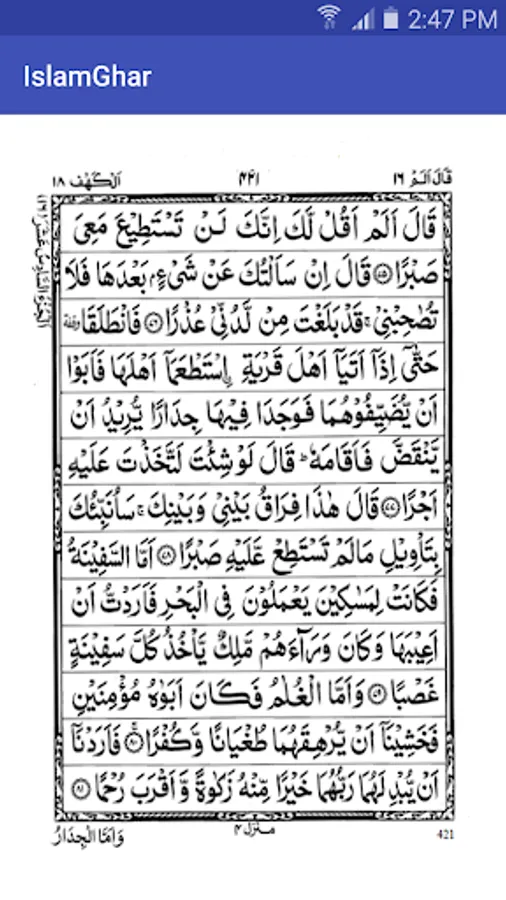 2:47 PM
IslamGhar
قَالَ اَلَمْ ١٦
۴۴۱
اَلْكَهْف ١٨
قَالَ اَلَمْ اَقُلْ لَّكَ اِنَّكَ لَنْ تَسْتَطِيْعَ مَعِىَ
صَبْرًا ۷۵ قَالَ اِنْ سَاَلْتُكَ عَنْ شَىْءٍۭ بَعْدَهَا فَلَا
تُصٰحِبْنِىْ ۚ قَدْ بَلَغْتَ مِنْ لَّدُنِّىْ عُذْرًا ۷۶ فَانْطَلَقَا وقفة
حَتّٰٓى اِذَآ اَتَيَآ اَهْلَ قَرْيَةِ اِۨسْتَطْعَمَآ اَهْلَهَا فَاَبَوْا
اَنْ يُّضَيِّفُوْهُمَا فَوَجَدَا فِيْهَا جِدَارًا يُّرِيْدُ اَنْ
يَّنْقَضَّ فَاَقَامَهٗ ؕ قَالَ لَوْ شِئْتَ لَتَّخَذْتَ عَلَيْهِ
اَجْرًا ۷۷ قَالَ هٰذَا فِرَاقُ بَيْنِىْ وَبَيْنِكَ ۚ سَاُنَبِّئُكَ
بِتَاْوِيْلِ مَا لَمْ تَسْتَطِعْ عَّلَيْهِ صَبْرًا ۷۸ اَمَّا السَّفِيْنَةُ
فَكَانَتْ لِمَسٰكِيْنَ يَعْمَلُوْنَ فِى الْبَحْرِ فَاَرَدْتُّ اَنْ
اَعِيْبَهَا وَكَانَ وَرَآءَهُمْ مَّلِكٌ يَّاْخُذُ كُلَّ سَفِيْنَةٍ
غَصْبًا ۷۹ وَاَمَّا الْغُلٰمُ فَكَانَ اَبَوٰهُ مُؤْمِنَيْنِ
فَخَشِيْنَآ اَنْ يُّرْهِقَهُمَا طُغْيَانًا وَّكُفْرًا ۸۰ فَاَرَدْنَآ
اَنْ يُّبْدِلَهُمَا رَبُّهُمَا خَيْرًا مِّنْهُ زَكٰوةً وَّاَقْرَبَ رُحْمًا ۸۱
منزل ۴
421
وَاَمَّا الْجِدَارُ